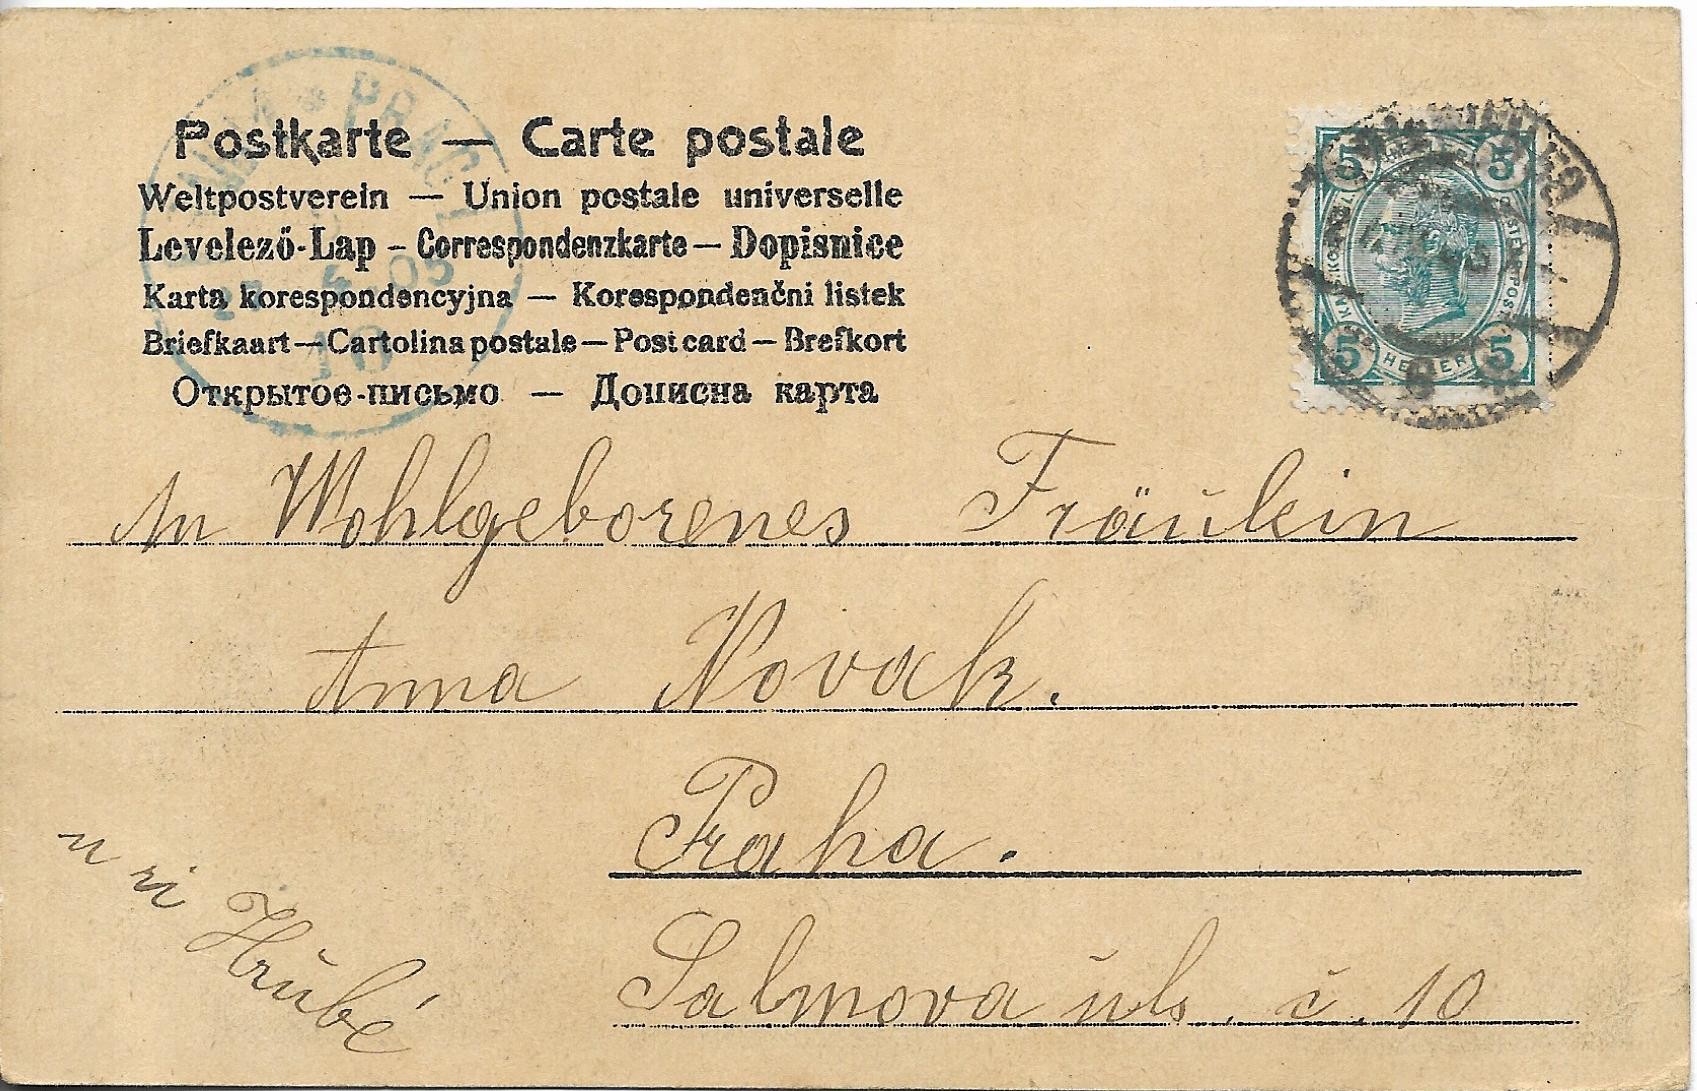 Postkarte — Carte postale
Weltpostverein — Union postale universelle
Levelező-Lap – Correspondenzkarte — Dopisnice
Karta korespondencyjna — Korespondenčni listek
Briefkaart — Cartolina postale — Post card — Brefkort
Открытое-письмо — Дописна карта
PRAG
05
10
5 5
5 HELLER 5
An Wohlgeborenes Fräulein
Anna Novak.
Praha.
Salmova ul. č. 10
u
Hrubé